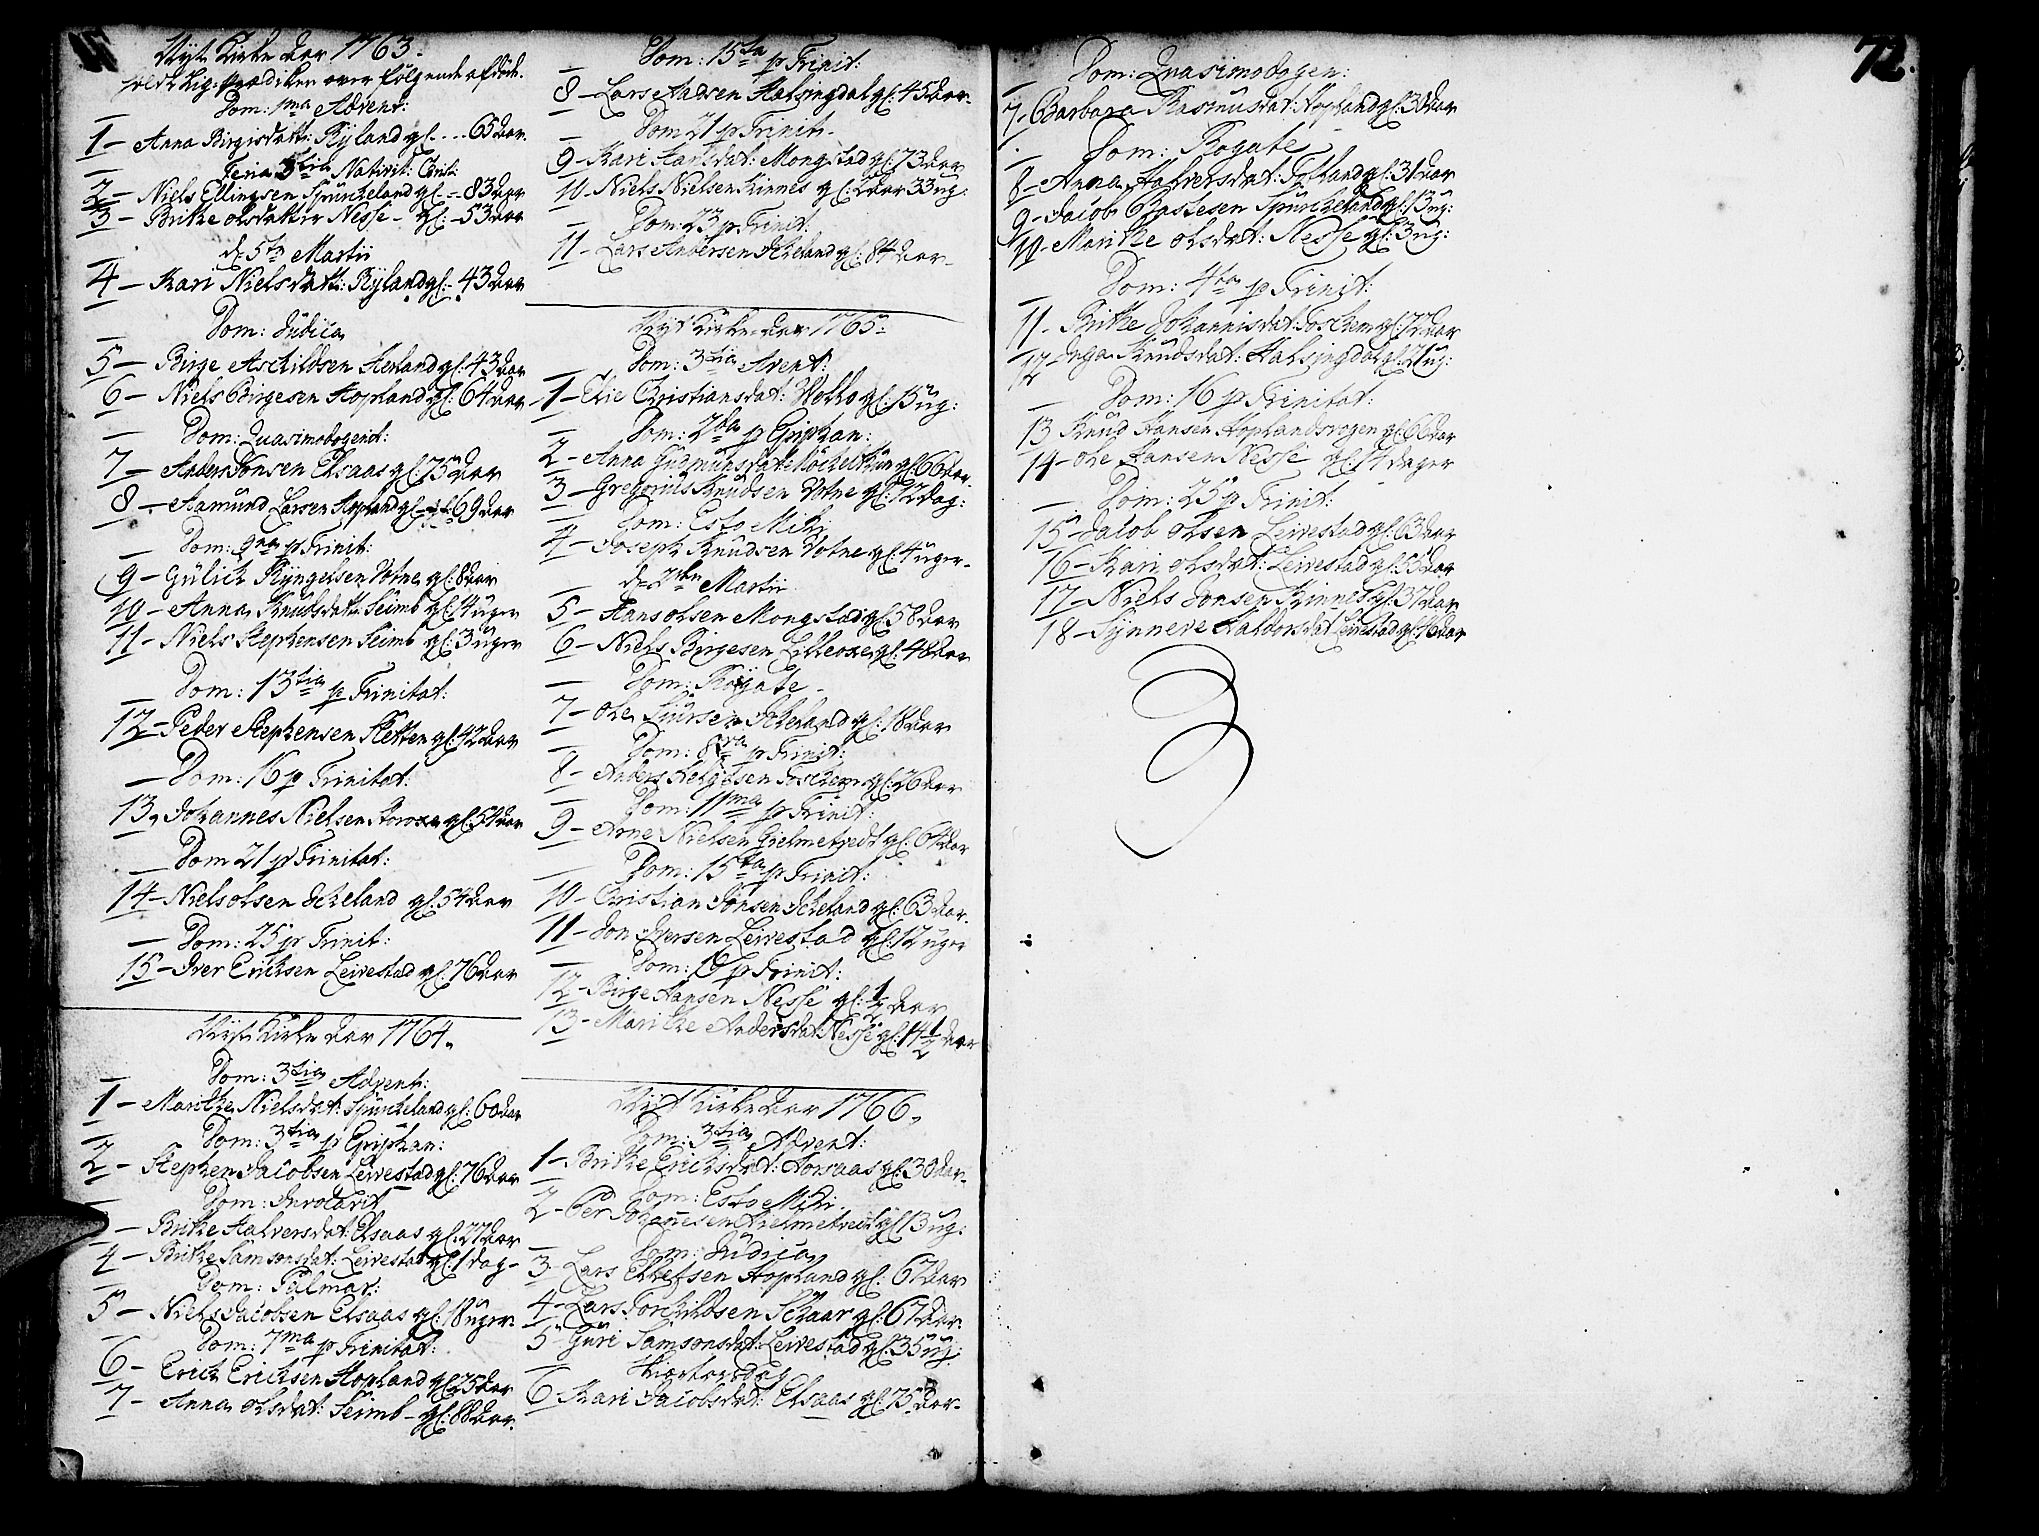 Nyt Kirke Aar 1763.
holdt Lig-Prædiken over følgende afdöde.
Dom: 1ma Advent:
1 - Anna Birgisdatt: Ryland gl. - - 65 Aar.
Feria 3tia Nativit: Christi
2 - Niels Ellingsen Spurcheland gl. - 83 Aar
3 - Brithe olsdatter Nesse - gl: - 53 Aar
d. 5te Martii
4 - Kari Nielsdatt: Ryland gl: - 43 Aar
Dom: Judica
5 - Birge Aschildsen Herland gl: 43 Aar
6 - Niels Birgesen Hopland gl: 64 Aar
Dom: Quasimodogenit:
7 - Anders Jonsen Elsaas gl: 75 Aar
8 - Aamund Larsen Hopland gl: 69 Aar
Dom: 9na p Trinit:
9 - Gulich Ryngelsen Votne gl: 8 Aar
10 - Anna Knudsdatt: Seimb gl: 14 uger
11 - Niels Stephensen Seimb gl: 3 uger
Dom: 13tia p Trinitat:
12 - Peder Stephensen Kletten gl: 42 Aar
Dom: 16 p Trinitat:
13, Johannes Nielsen Storoxe gl: 54 Aar
Dom 21 p Trinitat:
14 - Niels olsen Icheland gl: 54 Aar
Dom: 25 p Trinit:
15 - Iver Erichsen Leivestad gl: 76 Aar
Nyt Kirke Aar 1764.
Dom: 3tia Advent:
1 - Marithe Nielsdat: Spurcheland gl: 60 Aar
Dom: 3tia p Epiphan:
2 - Stephen Jacobsen Leivestad gl: 76 Aar
Dom: Invocavit
- Brithe Halversdat: Elsaas gl: 27 Aar
4 - Brithe Samsonsdat: Leivestad gl: 1 dag -
Dom: Palmar:
5 - Niels Jacobsen Elsaas gl: 18 uger.
Dom: 7ma p Trinitat:
6 - Erich Erichsen Hopland gl: 25 Aar
7 - Anna olsdat: Seimb - gl: 88 Aar.
Dom: 15ta p Trinit:
8 - Lars Andsen Halsingdal gl: 45 Aar.
Dom 21 p Trinit.
9 - Kari Hansdat: Mongstad gl: 73 Aar
10 - Niels Nielsen Kinnes gl: 2 Aar 33 ug:
Dom: 23 p Trinit:
11 - Lars Andersen Icheland gl: 84 Aar -
Nyt Kirke Aar 1765.
Dom: 3tia Avent:
1 - Elie Christiansdat: Wollo gl: 15 ug:
Dom: 2da p Epiphan:
2 - Anna Gudmunsdat: gl: 66 Aar.
3 - Gregorius Knudsen Votne gl: 12 dag:
Dom: Esto Mihi
4 - Joseph Knudsen Votne gl: 4 uger -
d. Martii
5 - Hans olsen Mongstad gl: 58 Aar
6 - Niels Birgesen Lilleoxe gl: 48 Aar
Dom: Rogate -
7 - ole Siursen Icheland gl: 18 Aar
Dom: 8va p Trinit:
8 - Anders Helgesen Foschem gl: 26 Aar
Dom: 11ma p Trinit:
9 - Arne Nielsen Gielmetvedt gl: 64 Aar
Dom: 15ta p Trinit:
10 - Christian Jonsen Icheland gl: 63 Aar.
11 - Jon Iversen Leivestad gl: 12 uger
Dom: 16 p Trinit:
12 - Birge Hansen Nesse gl: 1/2 Aar
13 - Marithe Andersdat: Nesse gl: 14 1/2 Aar
Nyt Kirke Aar 1766.
Dom: 3tia Advent:
1 - Brithe Erichsdat: Aorsaas gl: 30 Aar.
Dom: Esto Mihi
2 - Per Johannesen Hielmetvedt gl: 13 ug:
Dom: Judica
3 - Lars Ellefsen Hopland gl: 67 Aar
4 - Lars Torchildsen Schaar gl: 67 Aar.
5 Guri Samsonsdat: Leivestad gl: 35 ug:
Skiertorsdag
6 - Kari Jacobsdat: Elsaas gl: 75 Aar -
72.
Dom: Quasimodogen:
7 - Barbara Rasmusdat: Hopland gl: 30 Aar
Dom: Rogate
8 - Anna Halversdat: Totland gl: 31 Aar
9 - Jacob Bastesen Spurcheland gl: 13 ug:
10 - Marithe olsdat: Nesse gl: 3 ug:
Dom: 4ta p Trinit:
11 - Brithe Johannisdat: Foschem gl: 72 Aar
12 Inga Knudsdat: Halsingdal gl: 21 ug:
Dom: 16 p Trinitat:
13 Knud Hansen Hoplandsvogen gl: 60 Aar
14 - ole Hansen Nesse gl: 14 dager
Dom: 25 p Trinit:
15 - Jacob olsen Leivestad gl: 63 Aar
16 - Kari olsdat: Leivestad gl: 58 Aar
17 - Niels Jonsen Kinnes gl: 37 Aar
18 - Synneve Haldorsdat Leivestad gl: 76 Aar